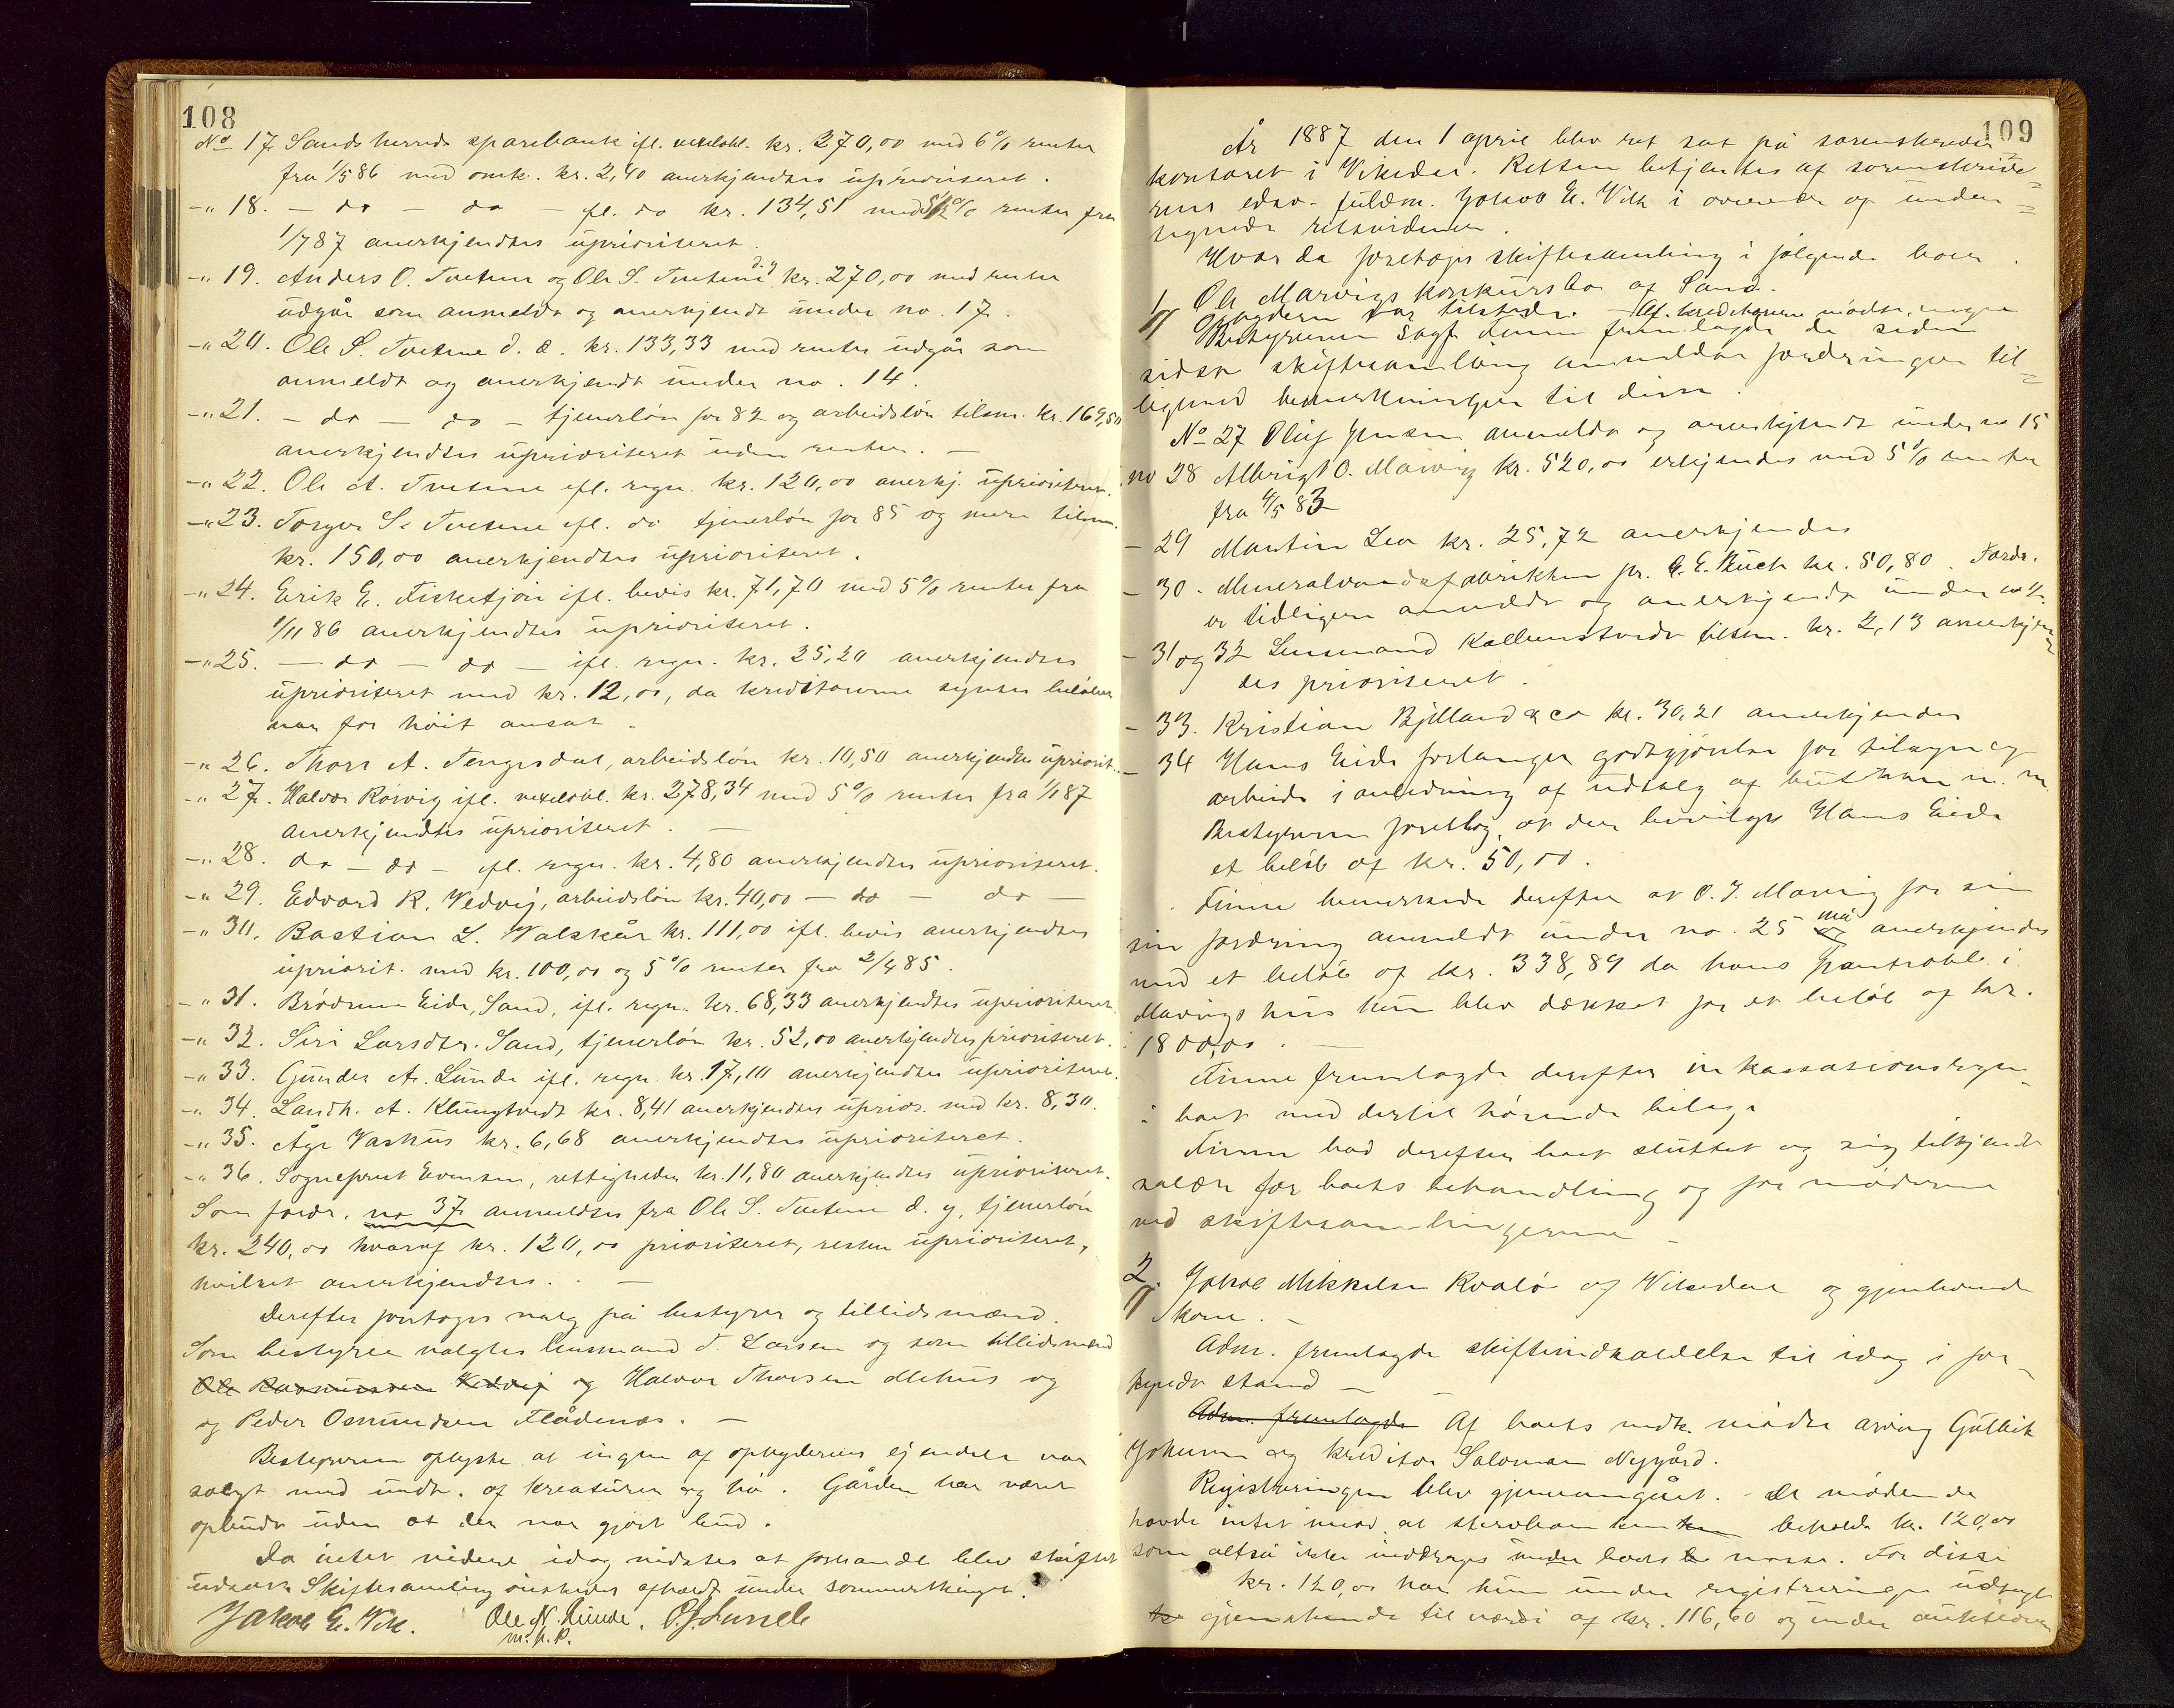 108
No 17. Sands herreds sparebank ifl. vexelobl. kr. 270,00 med 6% renter
fra 1/5 86 med omk. kr. 2,40 anerkjendtes uprioriteret.
-" 18. - do - do - ifl. do kr. 134,51 med 5½% renter fra
1/7 87 anerkjendtes uprioriteret.
-" 19. Anders O. Tveteene og Ole S. Tveteene d.y. kr. 270,00 med renter
udgår som anmeldt og anerkjendt under no. 17.
-" 20. Ole S. Tveteene d. æ. kr. 133,33 med renter udgår som
anmeldt og anerkjendt under no. 14.
-" 21. - do - do - tjenerløn for 82 og arbeidsløn tilsm. kr. 169,50
anerkjendtes uprioriteret uden renter. -
-" 22. Ole A. Tveteene ifl. regn. kr. 120,00 anerkj. uprioriteret.
-" 23. Torger S. Tveteene ifl. do tjenerløn for 85 og mere tilsm.
kr. 150,00 anerkjendtes uprioriteret.
-" 24. Erik E. Fisketjön ifl. bevis kr. 71,70 med 5% renter fra
1/11 86 anerkjendtes uprioriteret.
-" 25. - do - do - ifl. regn. kr. 25,20 anerkjendtes
uprioriteret med kr. 12,00, da kreditorerne syntes beløbet
var for høit ansat -
-" 26. Thore A. Tengesdal, arbeidsløn kr. 10,50 anerkjendtes upriorit.
-" 27. Halvor Rørvig ifl. vexelobl. kr. 278,34 med 5% renter fra 1/1 87
anerkjendtes uprioriteret. -
-" 28. do - do - ifl. regn. kr. 4,80 anerkjendtes uprioriteret.
-" 29. Edvard R. Vedvig, arbeidsløn kr. 40,00 - do - do -
-" 30. Bastian L. Valskår kr. 111,00 ifl. bevis anerkjendtes
upriorit. med kr. 100,00 og 5% renter fra 2/4 85.
-" 31. Brødrene Eide, Sand, ifl. regn. kr. 68,33 anerkjendtes uprioriteret
-" 32. Siri Larsdtr. Sand, tjenerløn kr. 52,00 anerkjendtes prioriteret.
-" 33. Gunder A. Lunde ifl. regn. kr. 17,10 anerkjendtes uprioriteret.
-" 34. Landh. A. Klungtvedt kr. 8,41 anerkjendtes uprior. med kr. 8,30.
-" 35. Åge Vashus kr. 6,68 anerkjendtes uprioriteret.
-" 36. Sogneprest Evensen, rettigheder kr. 11,80 anerkjendtes uprioriteret.
Som fordr. no 37. anmeldtes fra Ole S. Tveteene d. y. tjenerløn
kr. 240,00 hvoraf kr. 120,00 prioriteret, resten uprioriteret,
hvilket anerkjendtes. -
Derefter foretoges valg på bestyrer og tillidsmænd.
Som bestyrer valgtes lensmand T. Larsen og som tillidsmænd
Ole Rasmussen Vedvig og Halvor Thorsen Mehus og
og Peder Osmundsen Flådenæs. -
Bestyreren oplyste at ingen af opbyderens ejendele var
solgt med undt. af kreaturer og hø. Gården har været
opbudt uden at der var gjort bud.
Da intet videre idag vidstes at forhandle blev skiftet
udsat. Skiftesamling ønskedes afholdt under sommerthinget.
Jakob E. Vik. Ole N. Lunde. O. J. Lunde
m. p. P.
109
År 1887 den 1 april blev ret sat på sorenskriver
kontoret i Vikedal. Retten betjentes af sorenskrive=
rens edsv. fuldm. Jakob E. Vik i overvær af under=
tegnede retsvidner.
Hvor da foretoges skiftesamling i følgende boer.
1. Ole Marvigs konkursbo af Sand.
Opbyderen var tilstede. - Af kreditorerne mødte ingen
Bestyreren sagf. Finne fremlagde de siden
sidste skiftesamling anmeldte fordringer til=
ligemed bemerkninger til disse.
No 27 Oluf Jensen anmeldt og anerkjendt under no 15
no 28 Albrigt O. Marvig kr. 520,00 erkjendes med 5% renter
fra 4/5 83
- 29 Martin Lea kr. 25,72 anerkjendes
- 30. Mineralvandsfabrikken pr. C. E. Buch kr. 50,80. Fordr.
er tidligere anmeldt og anerkjendt under no 4.
- 31 og 32 Lensmand Kallenstvedt tilsm. kr. 2,13 anerkjen=
des prioriteret.
- 33. Kristian Bjelland & co kr. 30,21 anerkjendes
- 34 Hans Eide forlanger godtgjørelse for tilsyn og
arbeide i anledning af udsalg af butikken m. m.
Bestyreren foreslog, at der bevilges Hans Eide
et beløb af kr. 50,00.
Finne bemerkede derefter at O. J. Marvig for sin
sin fordring anmeldt under no. 25 og må anerkjendes
med et beløb af kr. 338,89 da hans pantobl. i
Marvigs hus kun blev dækket for et beløb af kr.
1800,00. -
Finne fremlagde derefter inkassationsregn.
i boet med dertil hørende bilage
Finne bad derefter boet sluttet og sig tilkjendt
salær for boets behandling og for møderne
ved skiftesamlingerne -
2. Jakob Mikkelsen Kvalø af Vikedal og gjenlevende
kone. -
Adm. fremlagde skifteindkaldelse til idag i for=
kyndt stand -
Adm. fremlagde Af boets vedk. mødte arving Gutlik
Johnsen og kreditor Saloman Nygård.
Registreringen blev gjennemgået. - De mødende
havde intet imod at stervboen kunde beholde kr. 120,00
som altså ikke inddrages under boets masse. For disse
kr. 120,00 har hun under registreringen udtaget
gjenstande til værdi af kr. 116,60 og under auktionen